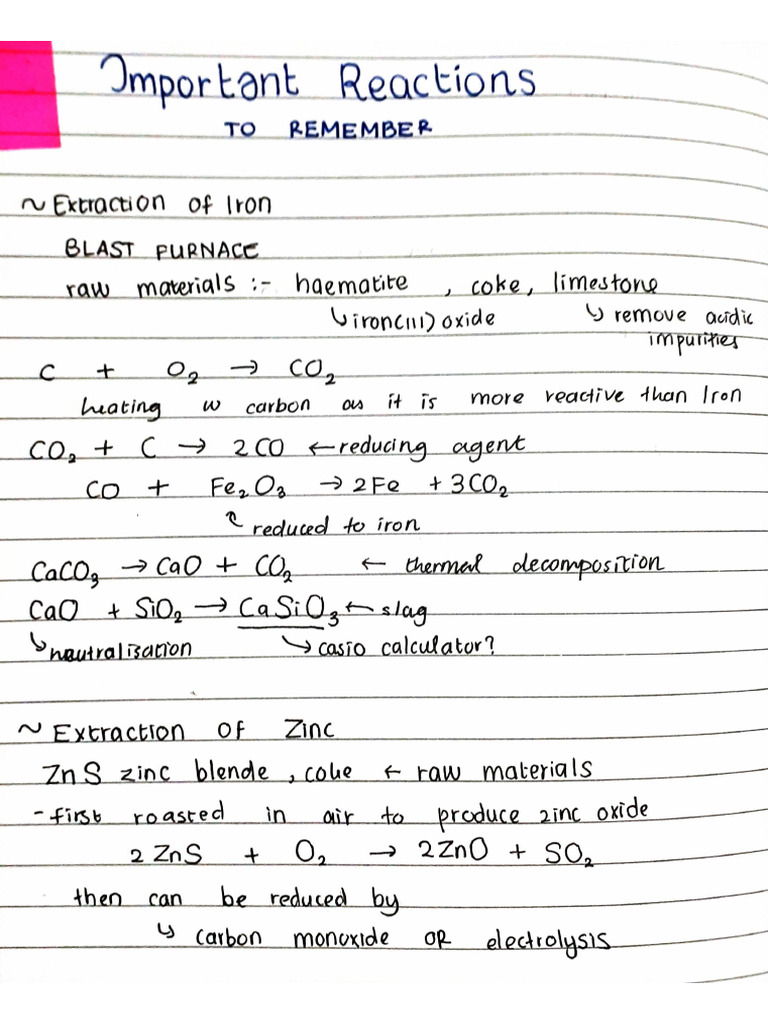 Important Reactions
TO REMEMBER
~ Extraction of Iron
BLAST FURNACE
raw materials :- haematite , coke, limestone
↳ iron(III) oxide ↳ remove acidic impurities
C + O₂ → CO₂
heating w carbon as it is more reactive than Iron
CO₂ + C → 2CO ← reducing agent
CO + Fe₂O₃ → 2Fe + 3CO₂
↑ reduced to iron
CaCO₃ → CaO + CO₂ ← thermal decomposition
CaO + SiO₂ → CaSiO₃ ← slag
↳ neutralisation ↳ casio calculator?
~ Extraction of Zinc
ZnS zinc blende , coke ← raw materials
- first roasted in air to produce zinc oxide
2 ZnS + O₂ → 2ZnO + SO₂
then can be reduced by
↳ carbon monoxide OR electrolysis